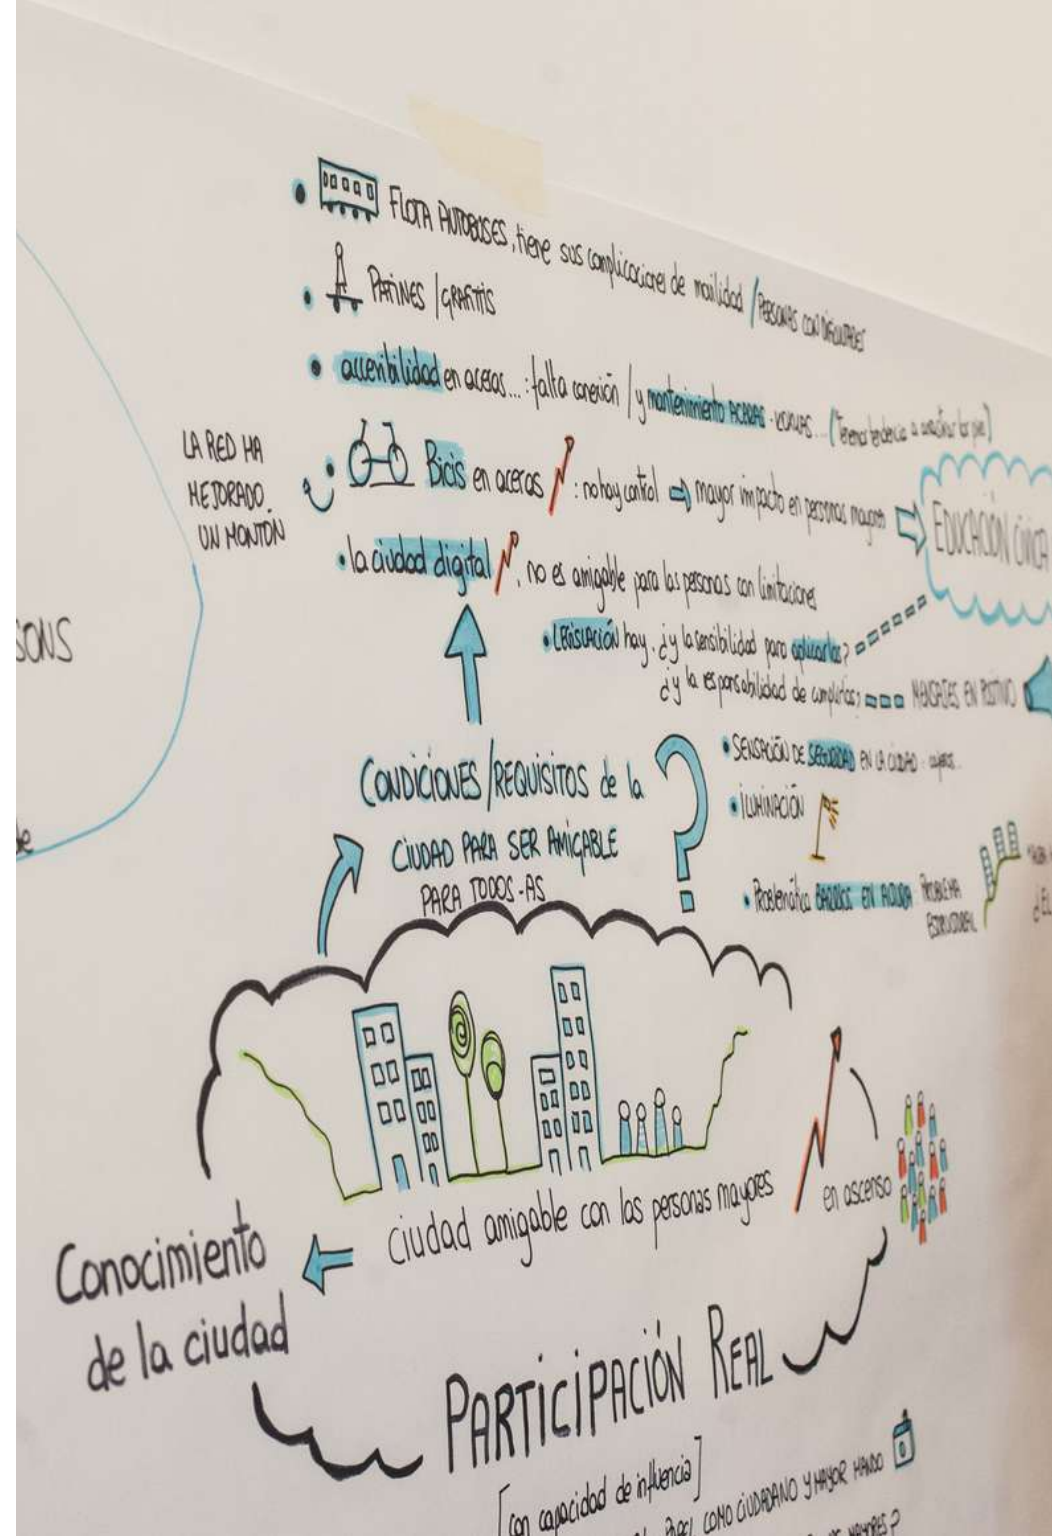 FLOTA AUTOBUSES, tiene sus complicaciones de movilidad / PERSONAS CON DIFICULTADES
PATINES / GRAFITIS
accesibilidad en aceras...: falta conexión / y mantenimiento ACERAS
LA RED HA
MEJORADO.
UN MONTÓN
Bicis en aceras : no hay control mayor impacto en personas mayores
EDUCACIÓN CÍVICA
la ciudad digital, no es amigable para las personas con limitaciones
LEGISLACIÓN hay. ¿y la sensibilidad para aplicarlas?
¿y la responsabilidad de cumplirlas? MENSAJES EN POSITIVO
SONS
de
CONDICIONES/REQUISITOS de la
CIUDAD PARA SER AMIGABLE
PARA TODOS-AS
?
SENSACIÓN DE SEGURIDAD EN LA CIUDAD
ILUMINACIÓN
Problemática BARRIOS EN ALTURA PROBLEMA
ESTRUCTURAL
ciudad amigable con las personas mayores
en ascenso
Conocimiento
de la ciudad
PARTICIPACIÓN REAL
[con capacidad de influencia]
PAPEL COMO CIUDADANO Y MAYOR MANDO
MAYORES?